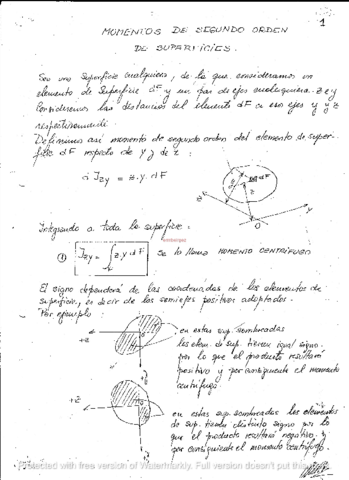 1
MOMENTOS DE SEGUNDO ORDEN
DE SUPERFICIES.
Sea una superficie cualquiera, de la que consideramos un
elemento de superficie dF y un par de ejes cualesquiera z e y
Consideremos las distancias del elemento dF a esos ejes y y z
respectivamente.
Definimos así momento de segundo orden del elemento de super-
ficie dF respecto de y y de z :
d Jzy = z.y.dF
z
y
O
Integrando a toda la superficie:
(1) Jzy = ∫ z.y dF se lo llama MOMENTO CENTRÍFUGO
F
El signo dependerá de las coordenadas de los elementos de
superficie, es decir de los semiejes positivos adoptados.
Por ejemplo :
+z
en estas sup. sombreadas
los elem. de sup. tienen igual signo
por lo que el producto resultará
positivo y por consiguiente el momento
centrífugo.
+z
en estas sup. sombreadas los elementos
de sup. tienen distinto signo por lo
que el producto resultará negativo y
por consiguiente el momento centrífugo.
Protected with free version of Watermarkly. Full version doesn't put this